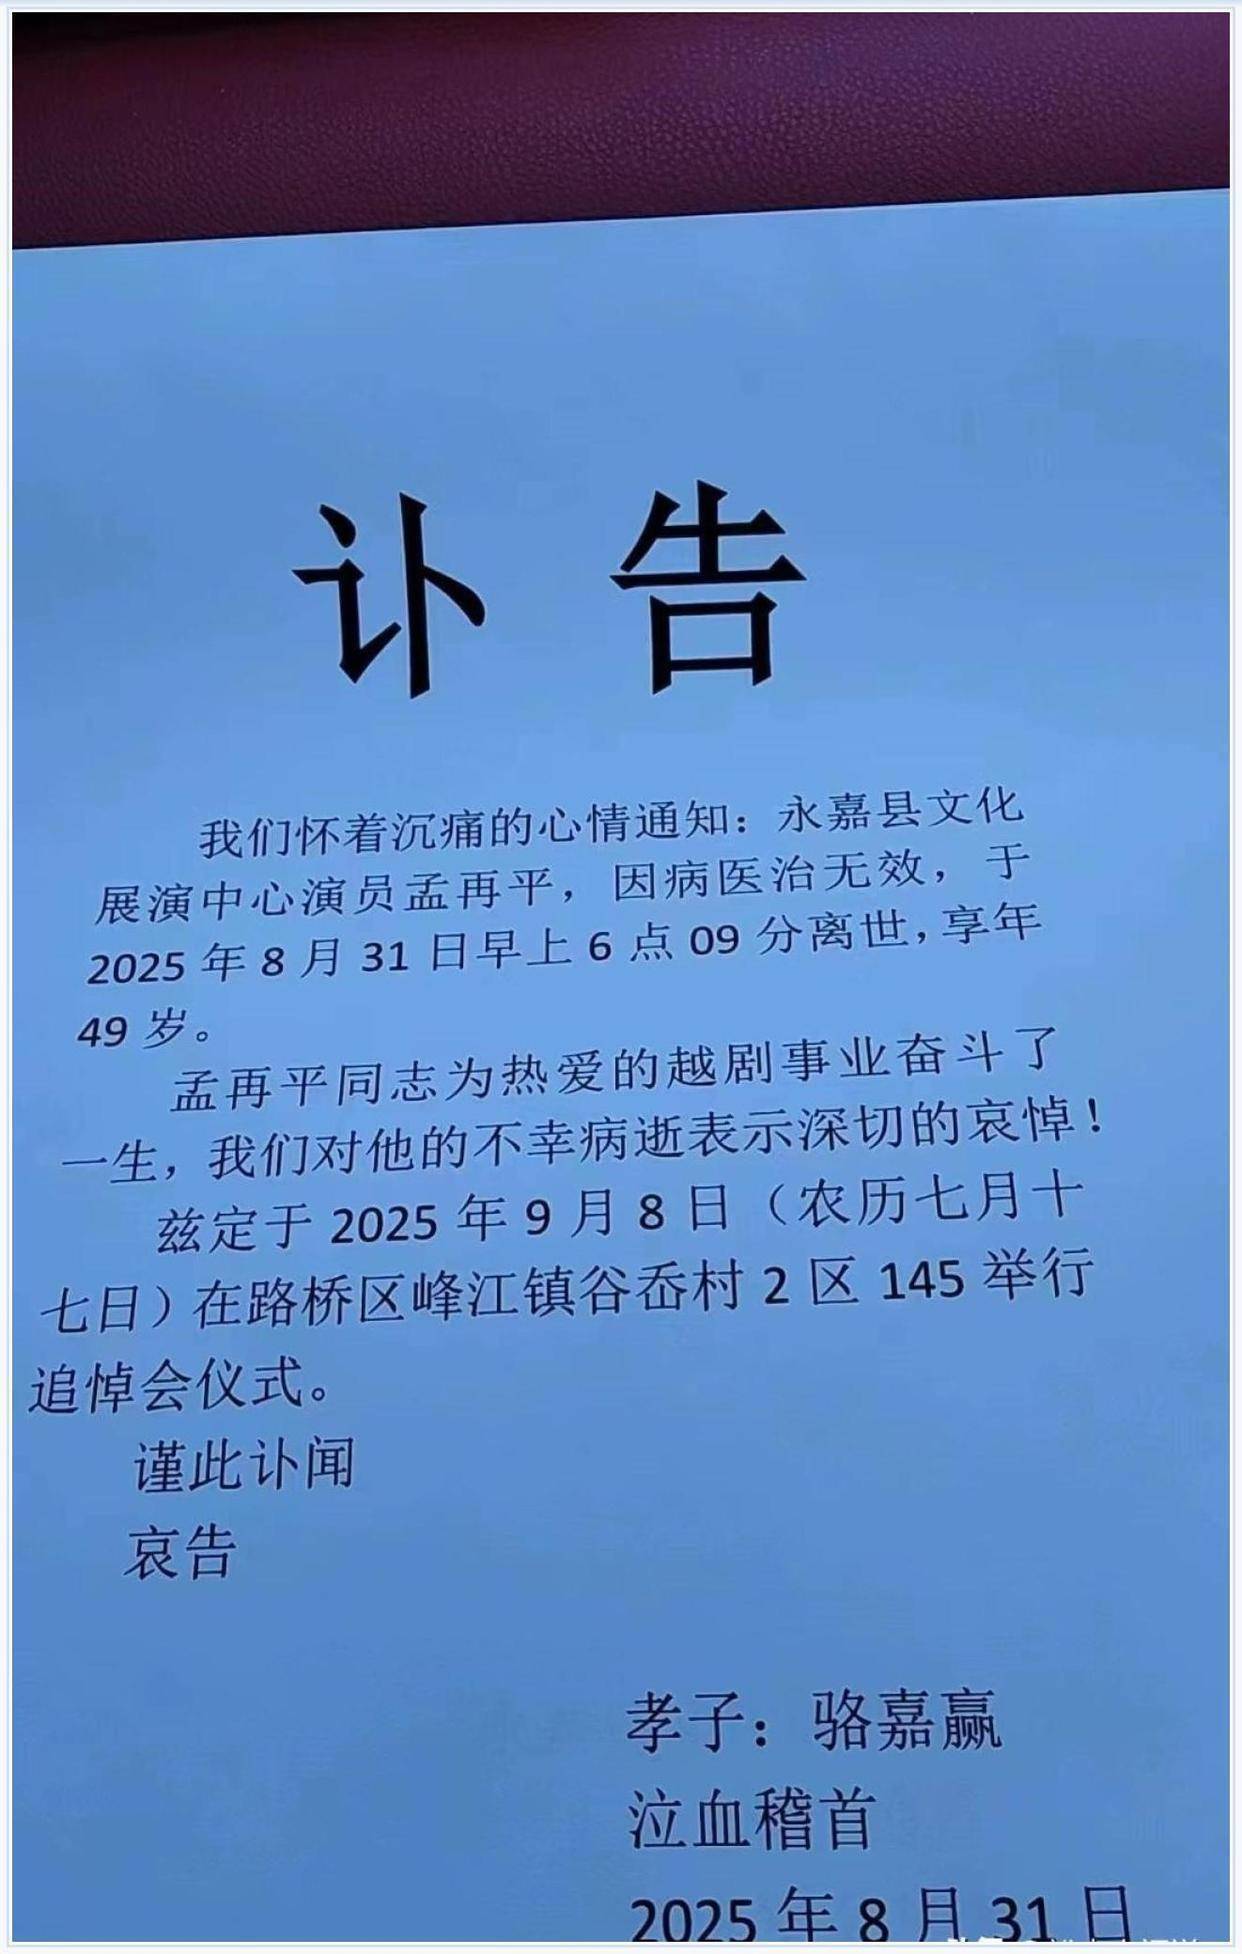 讣 告
我们怀着沉痛的心情通知：永嘉县文化
展演中心演员孟再平，因病医治无效，于
2025 年 8 月 31 日早上 6 点 09 分离世，享年
49 岁。
孟再平同志为热爱的越剧事业奋斗了
一生，我们对他的不幸病逝表示深切的哀悼！
兹定于 2025 年 9 月 8 日（农历七月十
七日）在路桥区峰江镇谷岙村 2 区 145 举行
追悼会仪式。
谨此讣闻
哀告
孝子：骆嘉赢
泣血稽首
2025 年 8 月 31 日